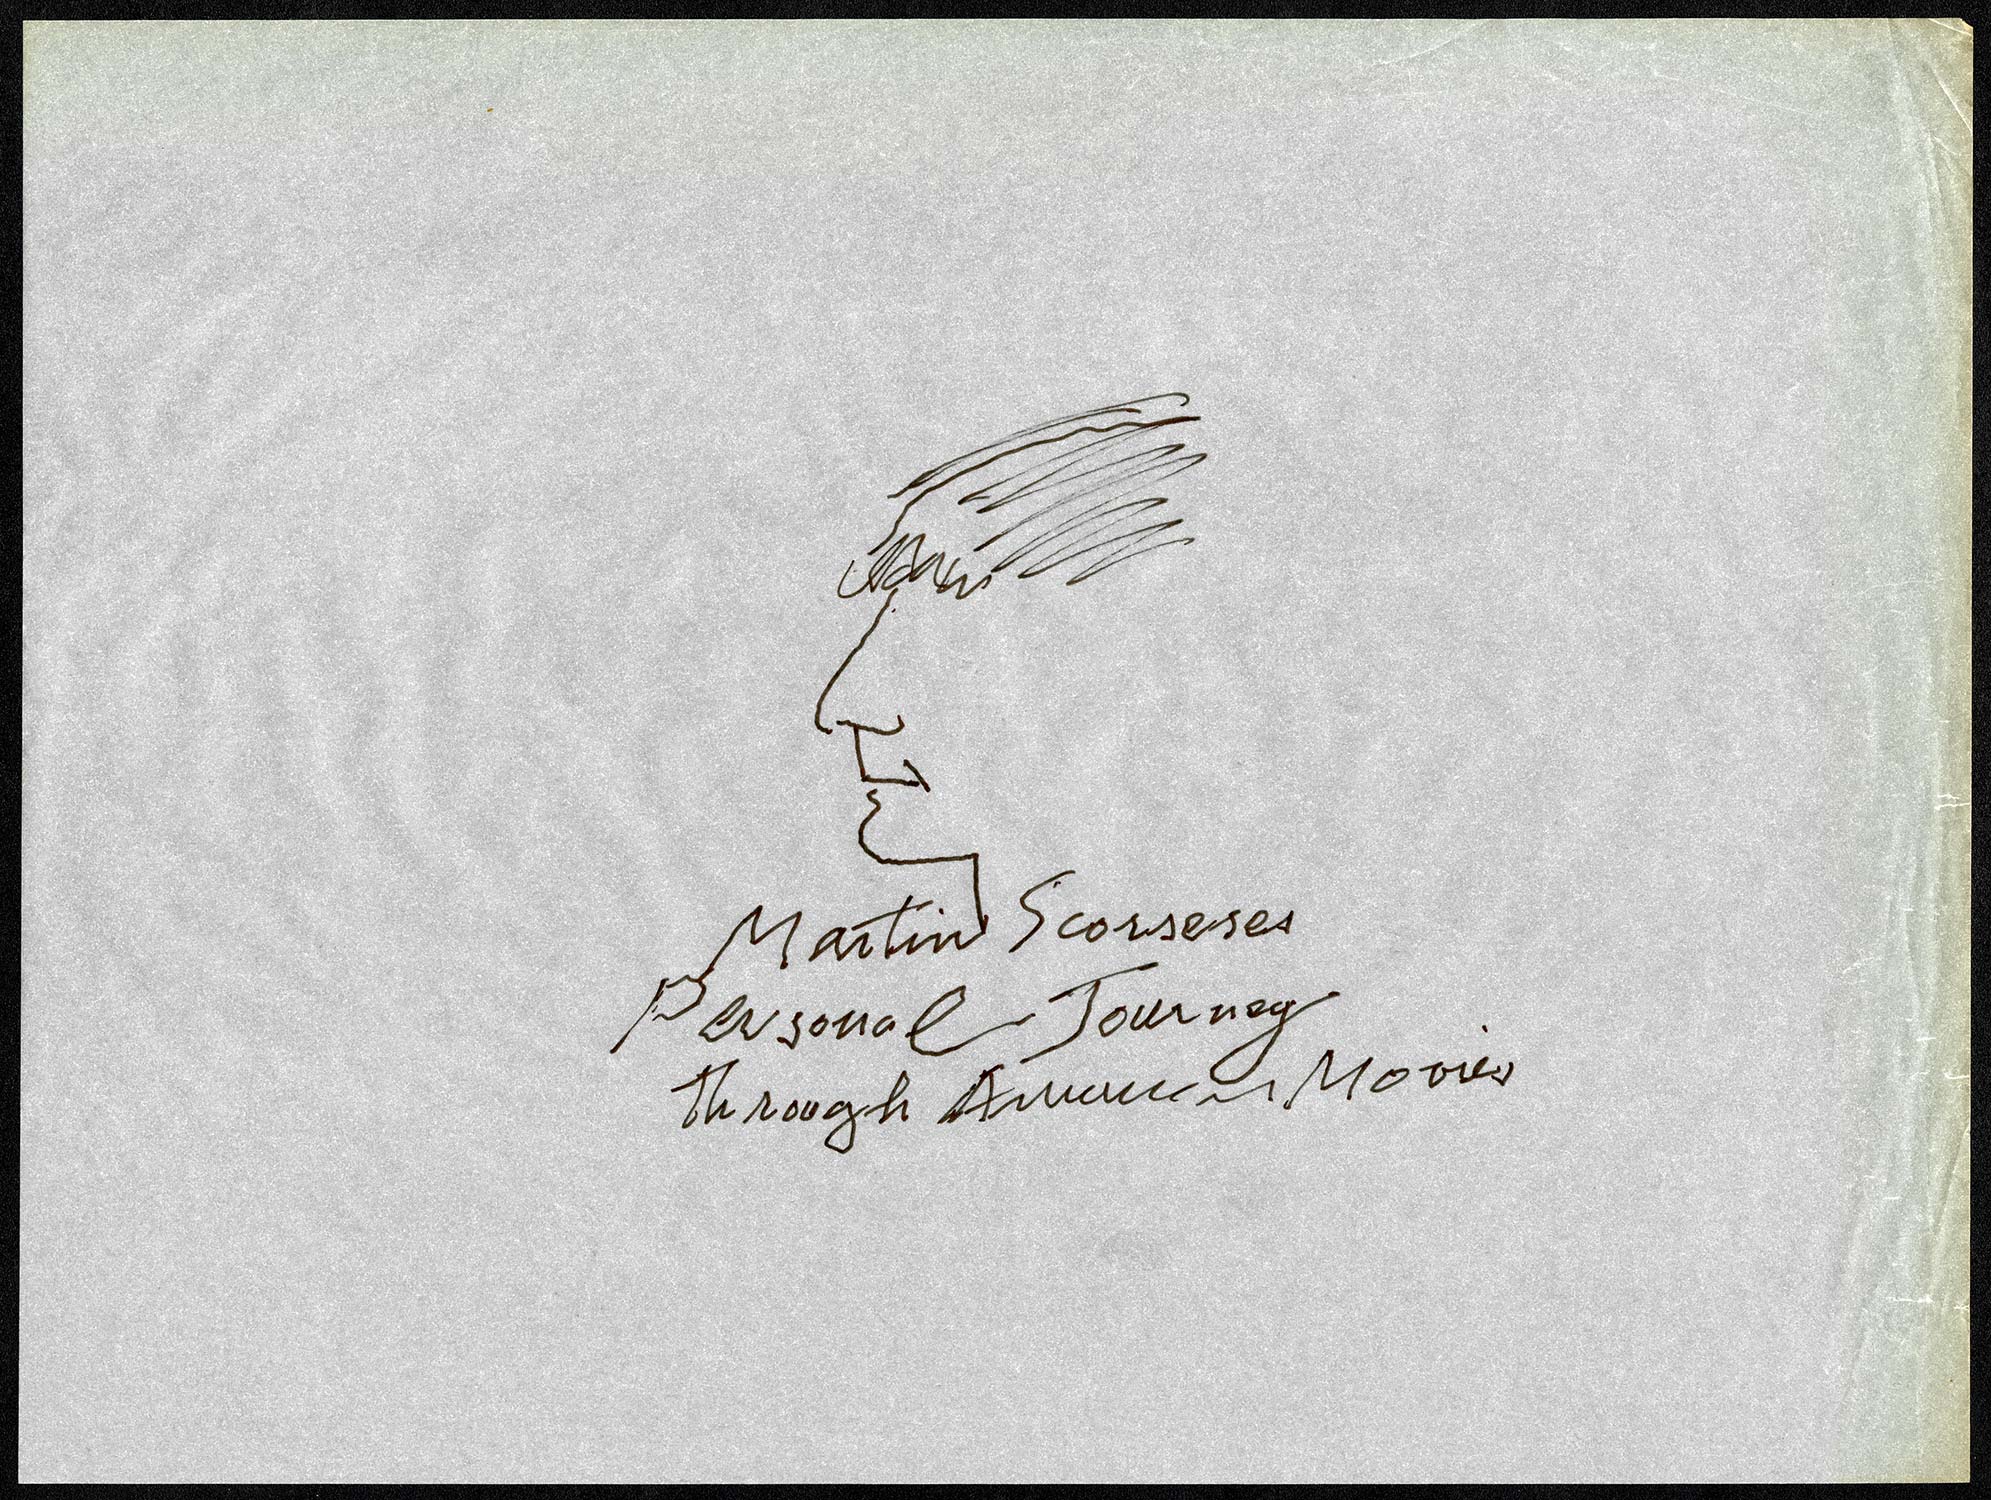 Martin Scorseses
Personal Journey
through American Movies